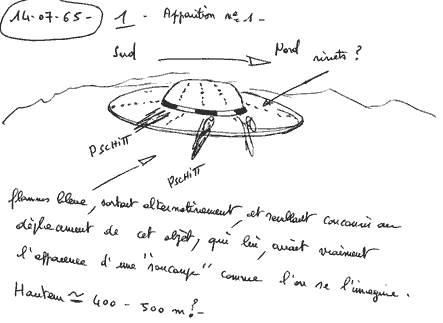 14-07-65- 1 - Apparition n° 1 -
Sud Nord rivets ?
PSCHITT
PSCHITT
flammes bleue, sortant alternativement, et semblant concourir au
déplacement de cet objet, qui lui, avait vraiment
l'apparence d'une "soucoupe" comme l'on se l'imagine.
Hauteur ≃ 400 - 500 m ? -